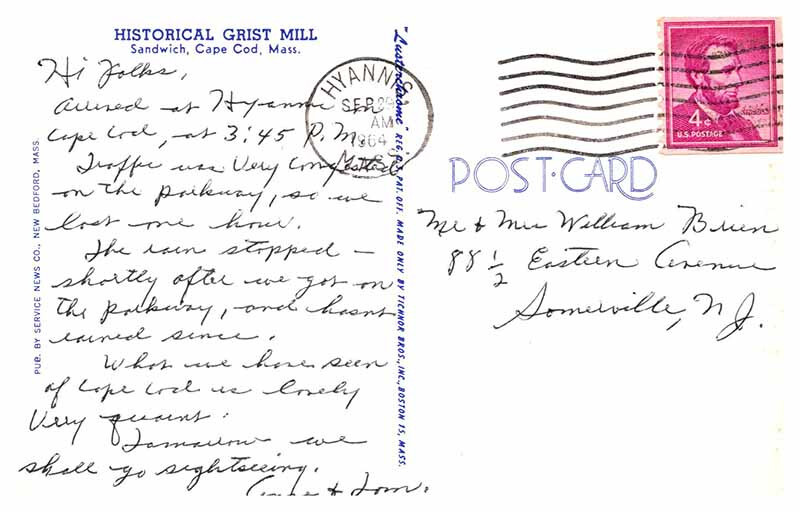 HISTORICAL GRIST MILL
Sandwich, Cape Cod, Mass.
Hi Folks,
Arrived at Hyannis in
Cape Cod, at 3:45 P.M.
Traffic was Very Congested
on the parkway, so we
lost one hour.
The rain stopped –
shortly after we got on
the parkway, and hasnt
rained since.
What we have seen
of Cape Cod is lovely
Very quaint.
Tomorrow we
shall go sightseeing.
& Tom.
PUB. BY SERVICE NEWS CO., NEW BEDFORD, MASS.
"Lusterchrome" REG. U.S. PAT. OFF. MADE ONLY BY TICHNOR BROS., INC., BOSTON 15, MASS.
HYANNIS
SEP
AM
1964
MASS
4¢
U.S. POSTAGE
POST-CARD
Mr & Mrs William Brien
88 1/2 Eastern Avenue
Somerville, N.J.